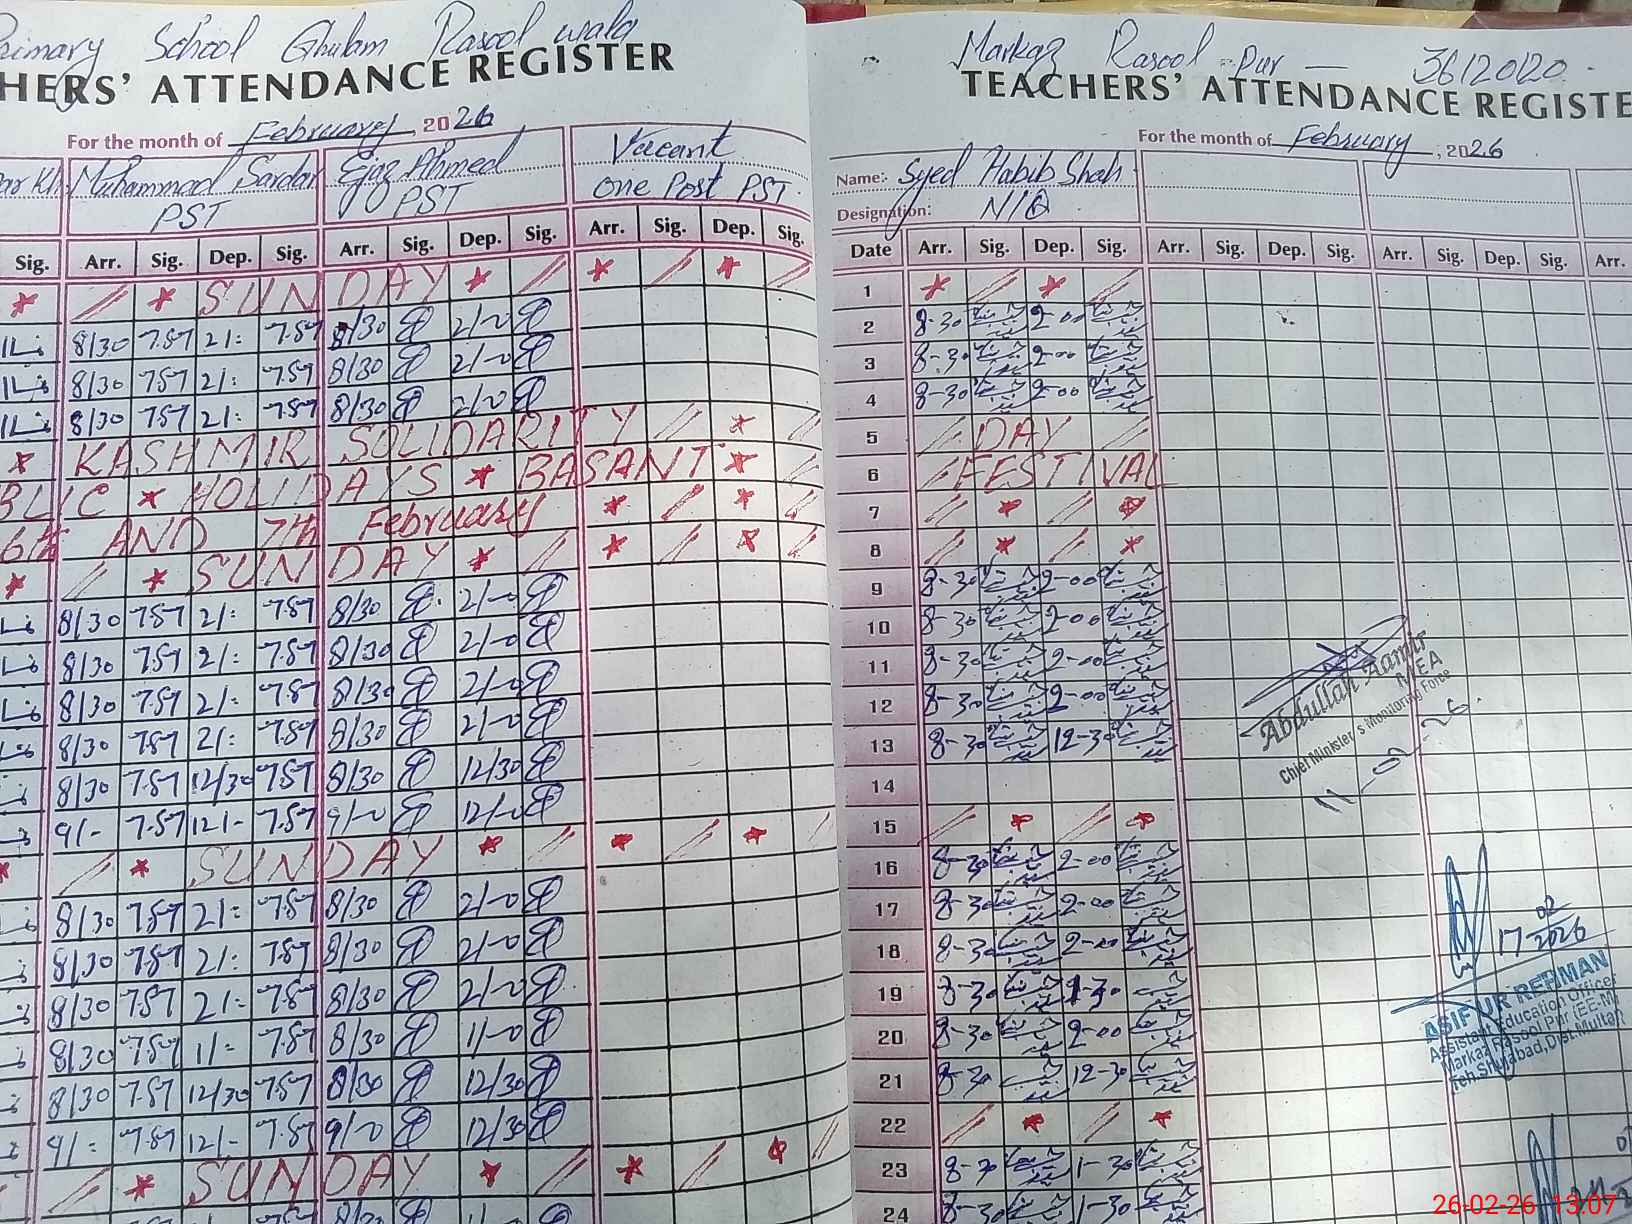 Primary School Ghulam Rasool wala
HERS' ATTENDANCE REGISTER
For the month of February, 2026
Muhammad Sardar Ejaz Ahmed Vacant
PST PST One Post PST
Sig. Arr. Sig. Dep. Sig. Arr. Sig. Dep. Sig. Arr. Sig. Dep. Sig.
SUNDAY
8/30 787 2/: 787 8/30 2/-0
8/30 787 2/: 787 8/30 2/-0
8/30 787 2/: 787 8/30 2/-0
KASHMIR SOLIDARITY
BLIC * HOLIDAYS * BASANT
6th AND 7th February
SUNDAY
8/30 787 2/: 787 8/30 2/-0
8/30 787 2/: 787 8/30 2/-0
8/30 787 2/: 787 8/30 2/-0
8/30 787 2/: 787 8/30 2/-0
8/30 787 12/30 787 8/30 12/30
9/- 787 12/- 787 9/-0 12/-0
SUNDAY
8/30 787 2/: 787 8/30 2/-0
8/30 787 2/: 787 8/30 2/-0
8/30 787 2/: 787 8/30 2/-0
8/30 787 1/= 787 8/30 1/-0
8/30 787 12/30 787 8/30 12/30
9/: 787 12/- 787 9/-0 12/30
SUNDAY
Markaz Rasool Pur — 36120120
TEACHERS' ATTENDANCE REGISTE
For the month of February, 2026
Name:- Syed Habib Shah
Designation:
Date Arr. Sig. Dep. Sig. Arr. Sig. Dep. Sig. Arr. Sig. Dep. Sig. Arr.
1
2 8-30 2-00
3 8-30 2-00
4 8-30 2-00
5 DAY
6 FESTIVAL
7
8
9 8-30 2-00
10 8-30 2-00
11 8-30 2-00
12 8-30 2-00
13 8-30 12-30
14
15
16 8-30 2-00
17 8-30 2-00
18 8-30 2-00
19 8-30 1-30
20 8-30 2-00
21 8-30 12-30
22
23 8-30 1-30
24 8-30 1-30
Abdullah Aamir
MEA
Chief Minister's Monitoring Force
11-02-26
17 02/2026
ASIF UR REHMAN
Assistant Education Officer
Markaz Rasool Pur (EE-M)
Teh.Shujabad,Dist.Multan
26-02-26 13:07